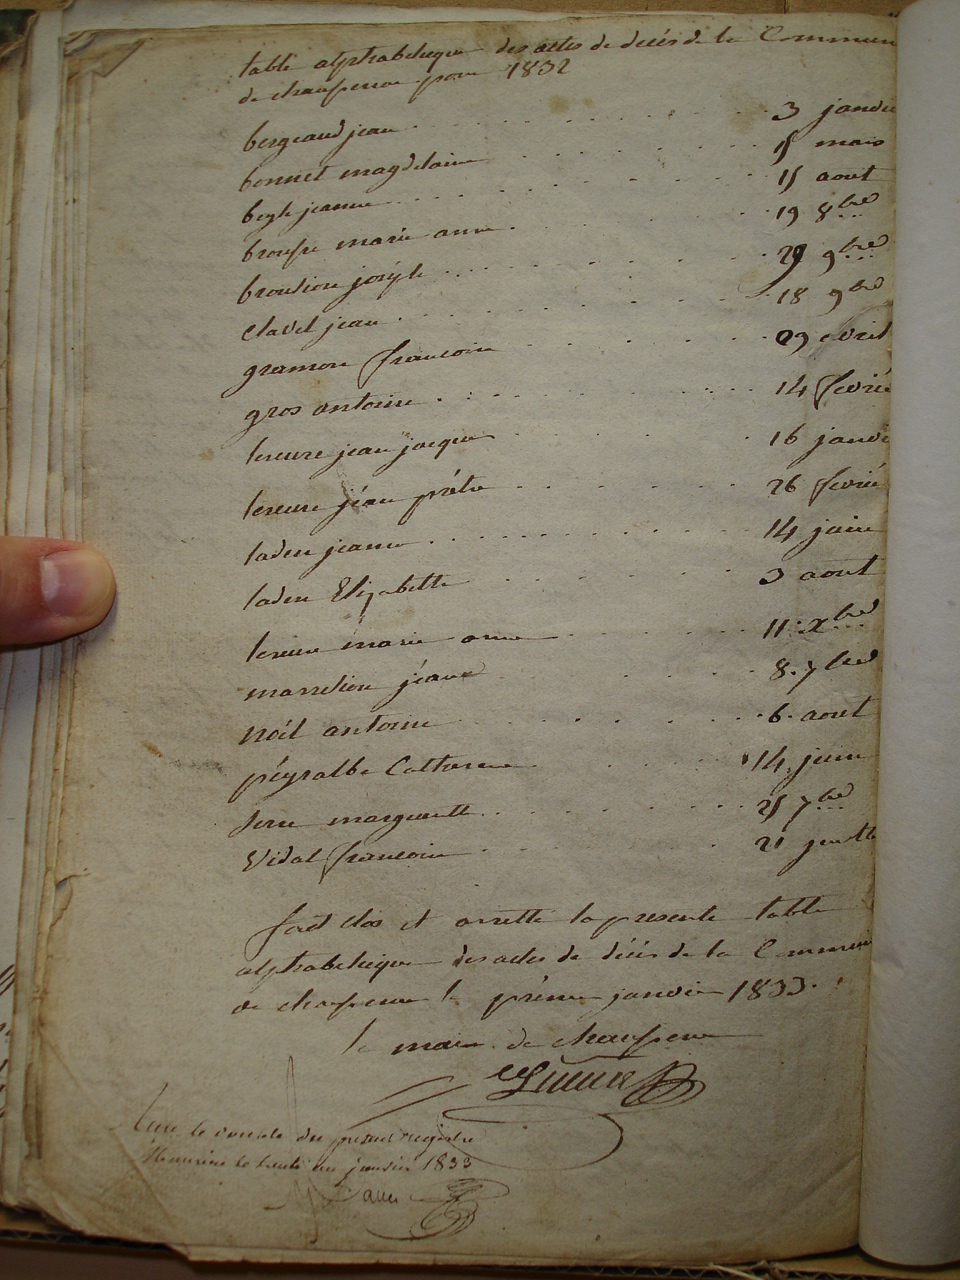 table alphabetique des actes de decés de la Commun
de chaussenac pour 1832
bergeaud jean 3 janvie
bonnet magdelaine 15 mars
jeanne 15 aout
brousse marie anne 19 8bre
broussion joseph 29 9bre
clavel jean 18 9bre
gramon francoise 29 avril
gros antoine 14 fevrie
leseure jean jacques 16 janvi
leseure jéan prétre 26 fevrié
laden jeanne 14 juin
laden Elizabette 3 aout
leseure marie anne 11 Xbre
marselion jéane 8 7bre
noël antoine 6 aout
péyralbe Catterine 14 juin
serre marguerite 25 7bre
Vidal francoise 21 juillt
fait clos et arretté la presente table
alphabetique des actes de décés de la Commune
de chaussenac le prémier janvier 1833
le maire de chaussenac
le presant registre
le trente un janvier 1833